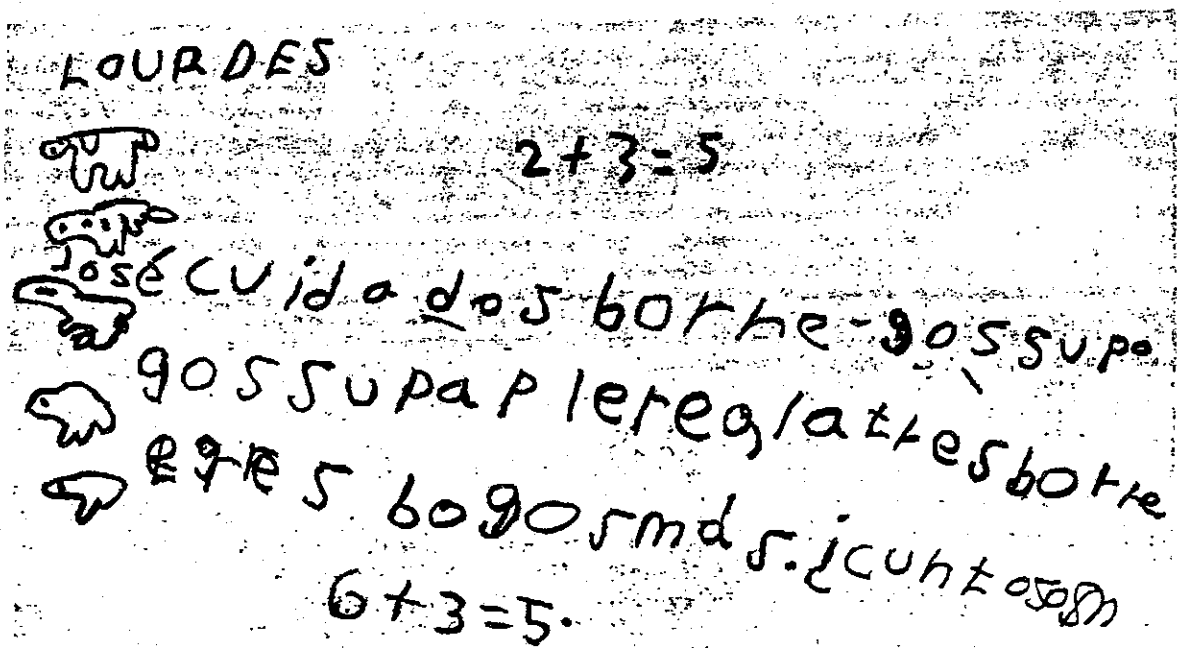 LOURDES
2+3=5
José cuida dos borre-gos supa
gos supap le regla tres borre
egres bogos mds. i cuntos
6+3=5.